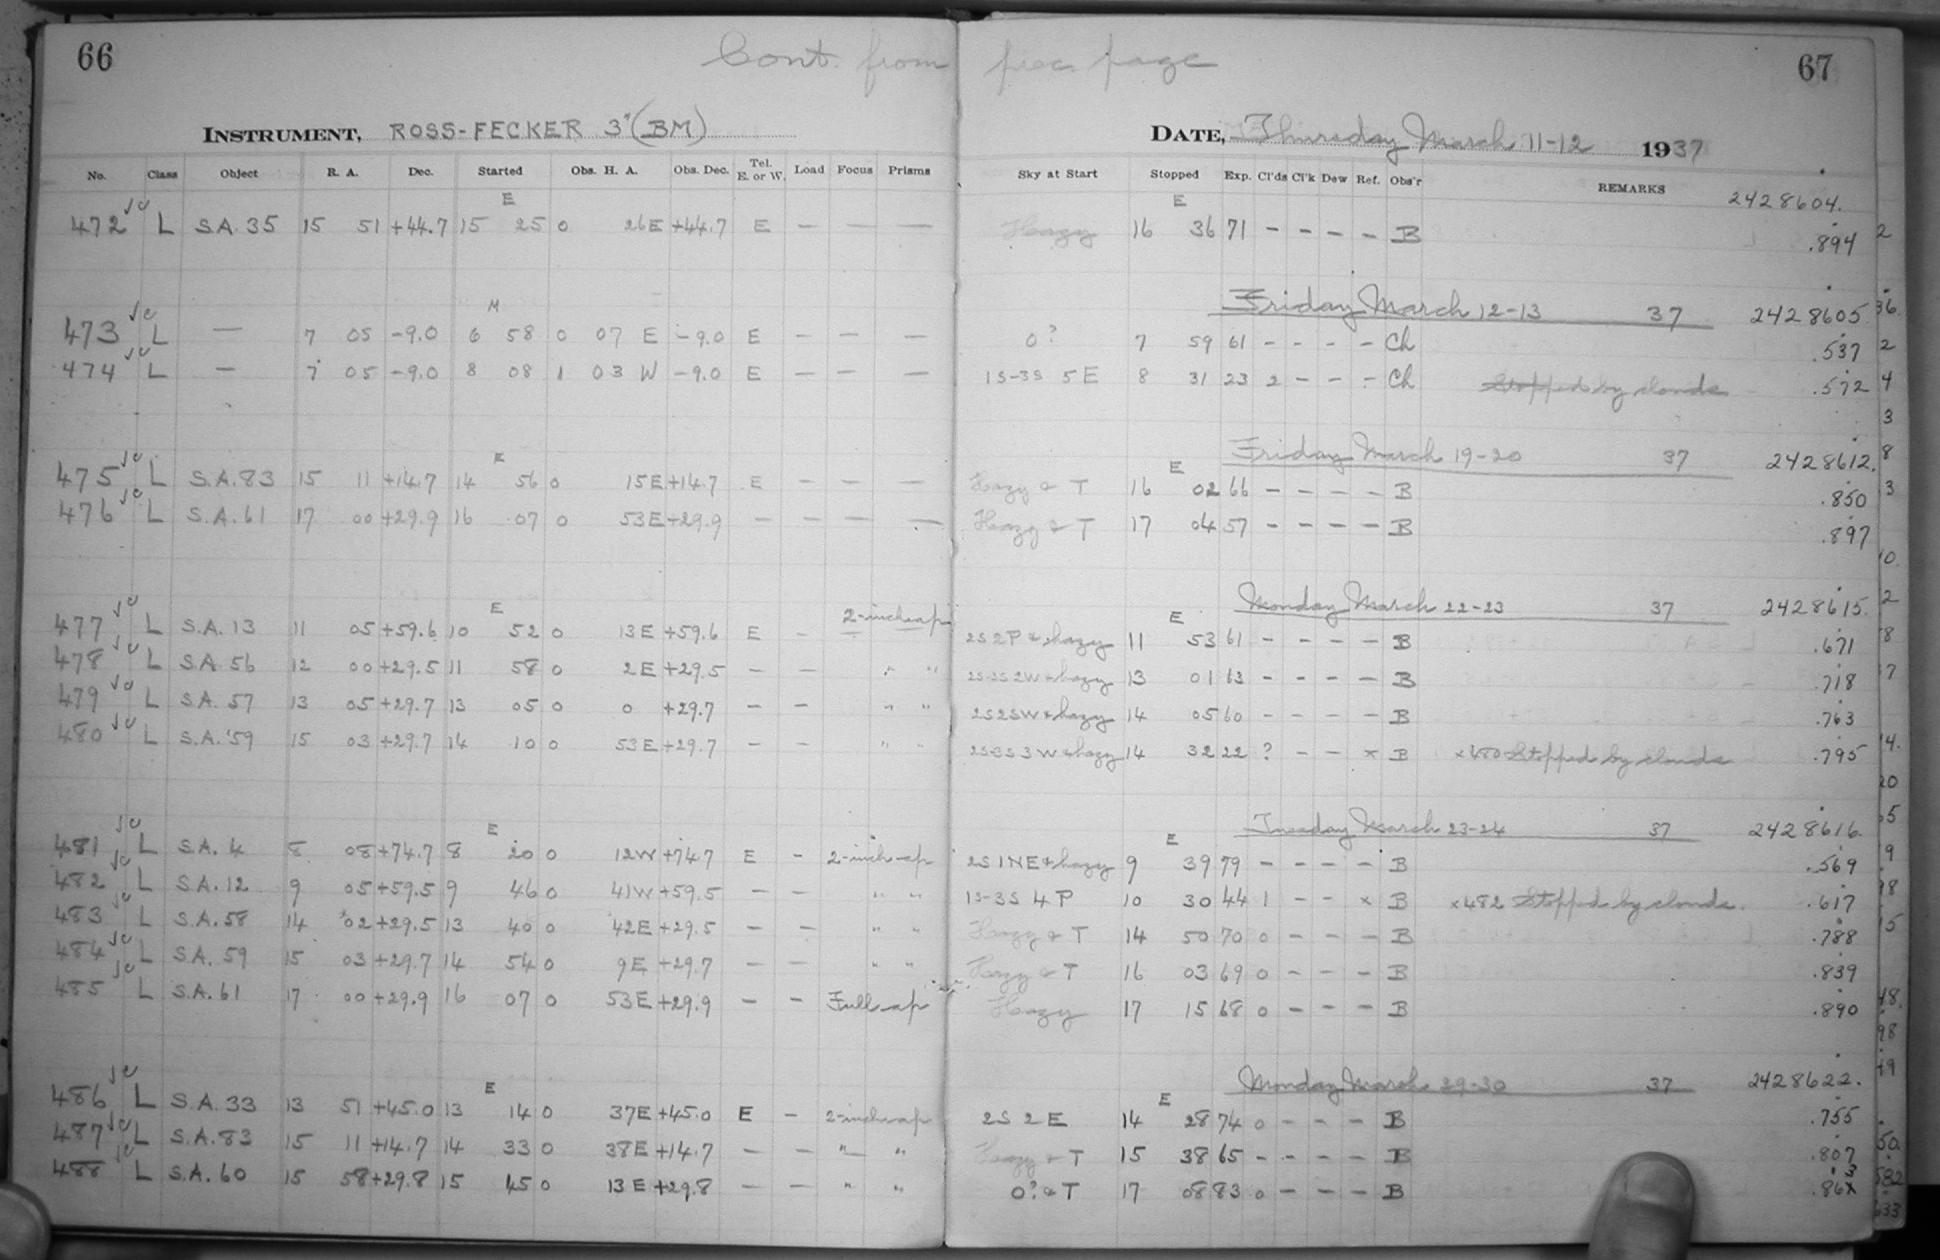 66
Cont. from prec. page
67
INSTRUMENT, ROSS-FECKER 3" (BM)
DATE, Thursday March 11-12 1937
No. Class Object R. A. Dec. Started Obs. H. A. Obs. Dec. Tel. E. or W. Load Focus Prisms Sky at Start Stopped Exp. Cl'ds Cl'k Dew Ref. Obs'r REMARKS
E E 2428604.
472 L S.A. 35 15 51 +44.7 15 25 0 26E +44.7 E — — — Hazy 16 36 71 – – – – B .894
M Friday March 12-13 37 2428605
473 L — 7 05 -9.0 6 58 0 07 E -9.0 E — — — 0? 7 59 61 – – – – Ch .537
474 L — 7 05 -9.0 8 08 1 03 W -9.0 E — — — 1S-3S 5E 8 31 23 2 – – – Ch Stopped by clouds .572
E E Friday March 19-20 37 2428612.
475 L S.A. 83 15 11 +14.7 14 56 0 15E +14.7 E — — — Hazy & T 16 02 66 – – – – B .850
476 L S.A. 61 17 00 +29.9 16 07 0 53E +29.9 — — — — Hazy & T 17 04 57 – – – – B .897
E E Monday March 22-23 37 2428615.
477 L S.A. 13 11 05 +59.6 10 52 0 13E +59.6 E – 2-inch ap 2S 2P & hazy 11 53 61 – – – – B .671
478 L S.A. 56 12 00 +29.5 11 58 0 2E +29.5 — — " " 2S-3S 2W & hazy 13 01 63 – – – – B .718
479 L S.A. 57 13 05 +29.7 13 05 0 0 +29.7 — — " " 2S 2SW & hazy 14 05 60 – – – – B .763
480 L S.A. 59 15 03 +29.7 14 10 0 53E +29.7 — — " " 2S-3S 3W & hazy 14 32 22 ? – – x B x480 Stopped by clouds .795
E E Tuesday March 23-24 37 2428616.
481 L S.A. 4 8 08 +74.7 8 20 0 12W +74.7 E – 2-inch ap 2S 1NE & hazy 9 39 79 – – – – B .569
482 L S.A. 12 9 05 +59.5 9 46 0 41W +59.5 — — " " 1S-3S 4P 10 30 44 1 – – x B x482 Stopped by clouds. .617
483 L S.A. 58 14 02 +29.5 13 40 0 42E +29.5 — — " " Hazy & T 14 50 70 0 – – – B .788
484 L S.A. 59 15 03 +29.7 14 54 0 9E +29.7 — — " " Hazy & T 16 03 69 0 – – – B .839
485 L S.A. 61 17 00 +29.9 16 07 0 53E +29.9 — — Full ap Hazy 17 15 68 0 – – – B .890
E E Monday March 29-30 37 2428622.
486 L S.A. 33 13 51 +45.0 13 14 0 37E +45.0 E – 2-inch ap 2S 2E 14 28 74 0 – – – B .755
487 L S.A. 83 15 11 +14.7 14 33 0 38E +14.7 — — " " Hazy & T 15 38 65 – – – – B .807
488 L S.A. 60 15 58 +29.8 15 45 0 13E +29.8 — — " " 0? & T 17 08 83 0 – – – B .863